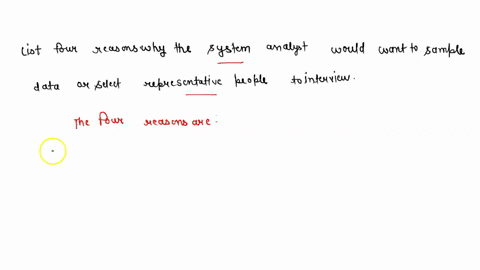 List four reasons why the system analyst would want to sample
data or select representative people to interview.
The four reasons are.